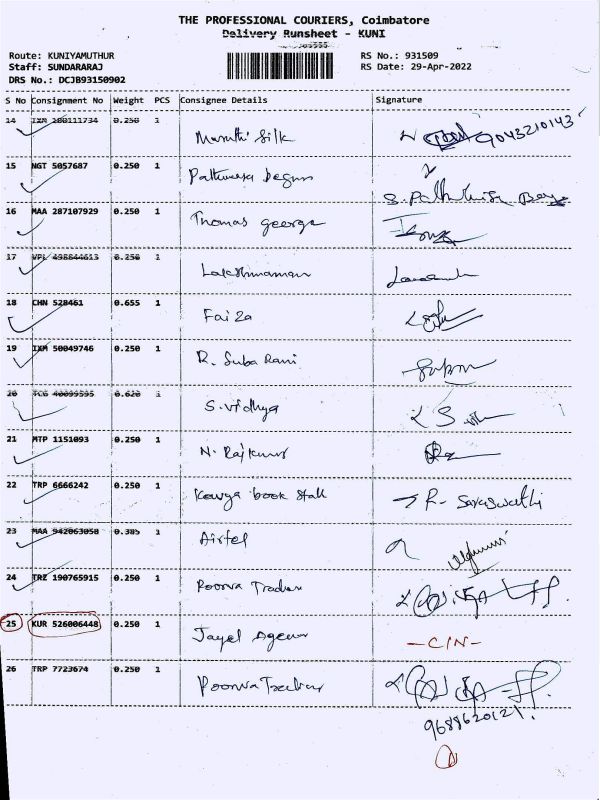 THE PROFESSIONAL COURIERS, Coimbatore
Delivery Runsheet - KUNI
Route: KUNIYAMUTHUR
Staff: SUNDARARAJ
DRS No.: DCJB93150902
RS No.: 931509
RS Date: 29-Apr-2022
S No Consignment No Weight PCS Consignee Details Signature
14 IXM 180111734 0.250 1
Maruthi Silk 9043210143
15 NGT 5057687 0.250 1
Begum
16 MAA 287107929 0.250 1
Thomas george
17 VPL 498844613 0.250 1
Lakshmanan
18 CHN 528461 0.655 1
Faiza
19 IXM 50049746 0.250 1
R. Suba Rani
20 TCG 40099595 0.620 1
S. Vidhya
21 MTP 1151093 0.250 1
N. Rajkumar
22 TRP 6666242 0.250 1
Kavya book Stall R. Saraswathi
23 MAA 942063058 0.385 1
Airtel
24 TRZ 190765915 0.250 1
Poorva Traders
25 KUR 526006448 0.250 1
Jayel Agency -C/N-
26 TRP 7723674 0.250 1
Poorva Traders
9688620121.